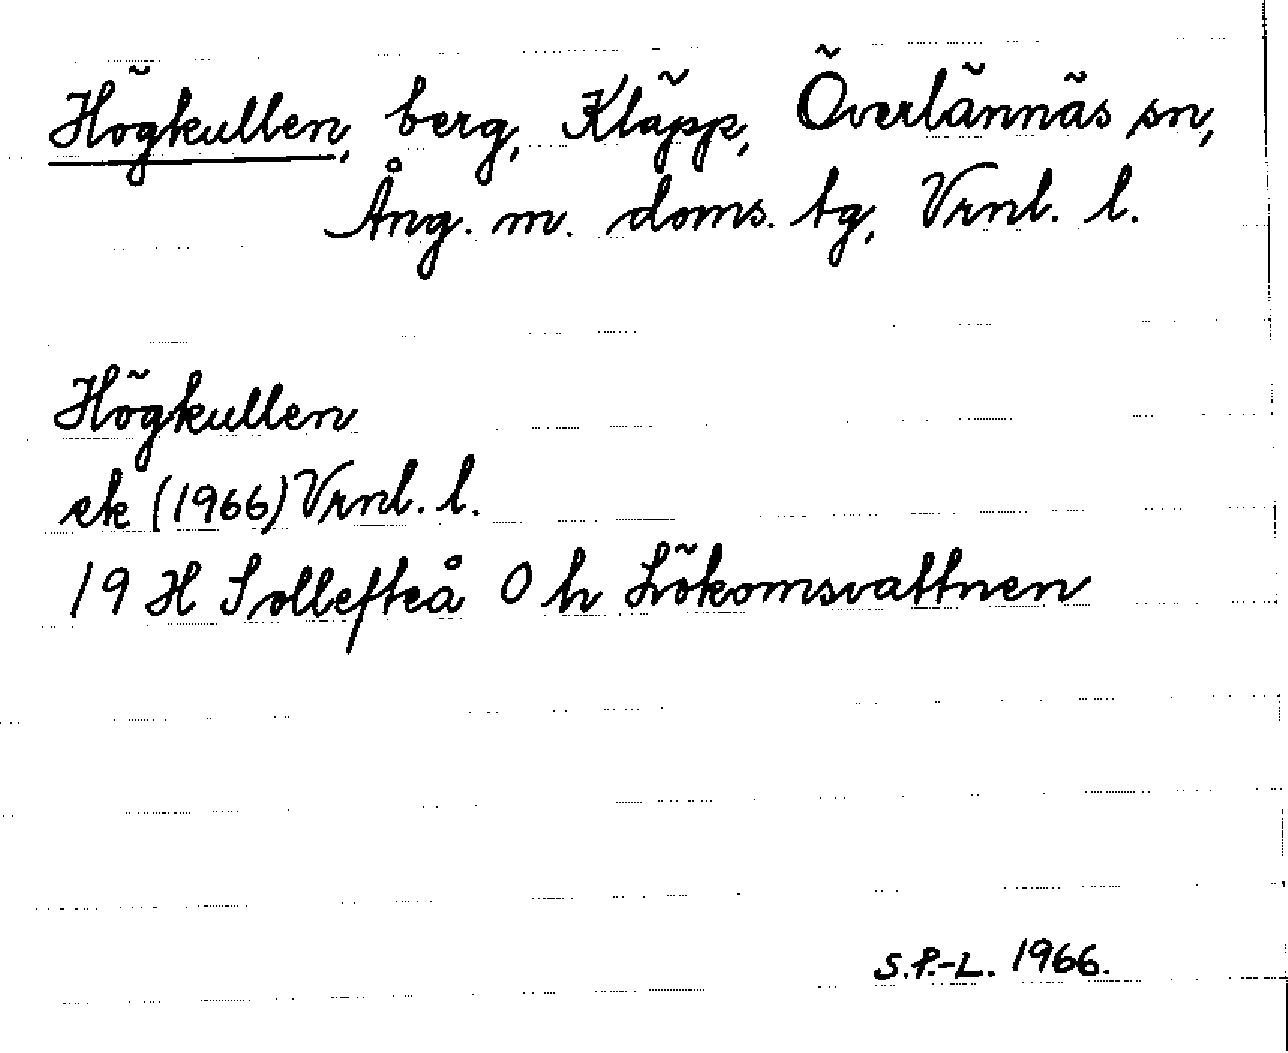 Högkullen, berg, Kläpp, Överlännäs sn,
Ång. m. doms. tg, Vrnl. l.
Högkullen
ek (1966) Vrnl. l.
19 H Sollefteå 0 h Lökomsvattnen
S.P.-L. 1966.